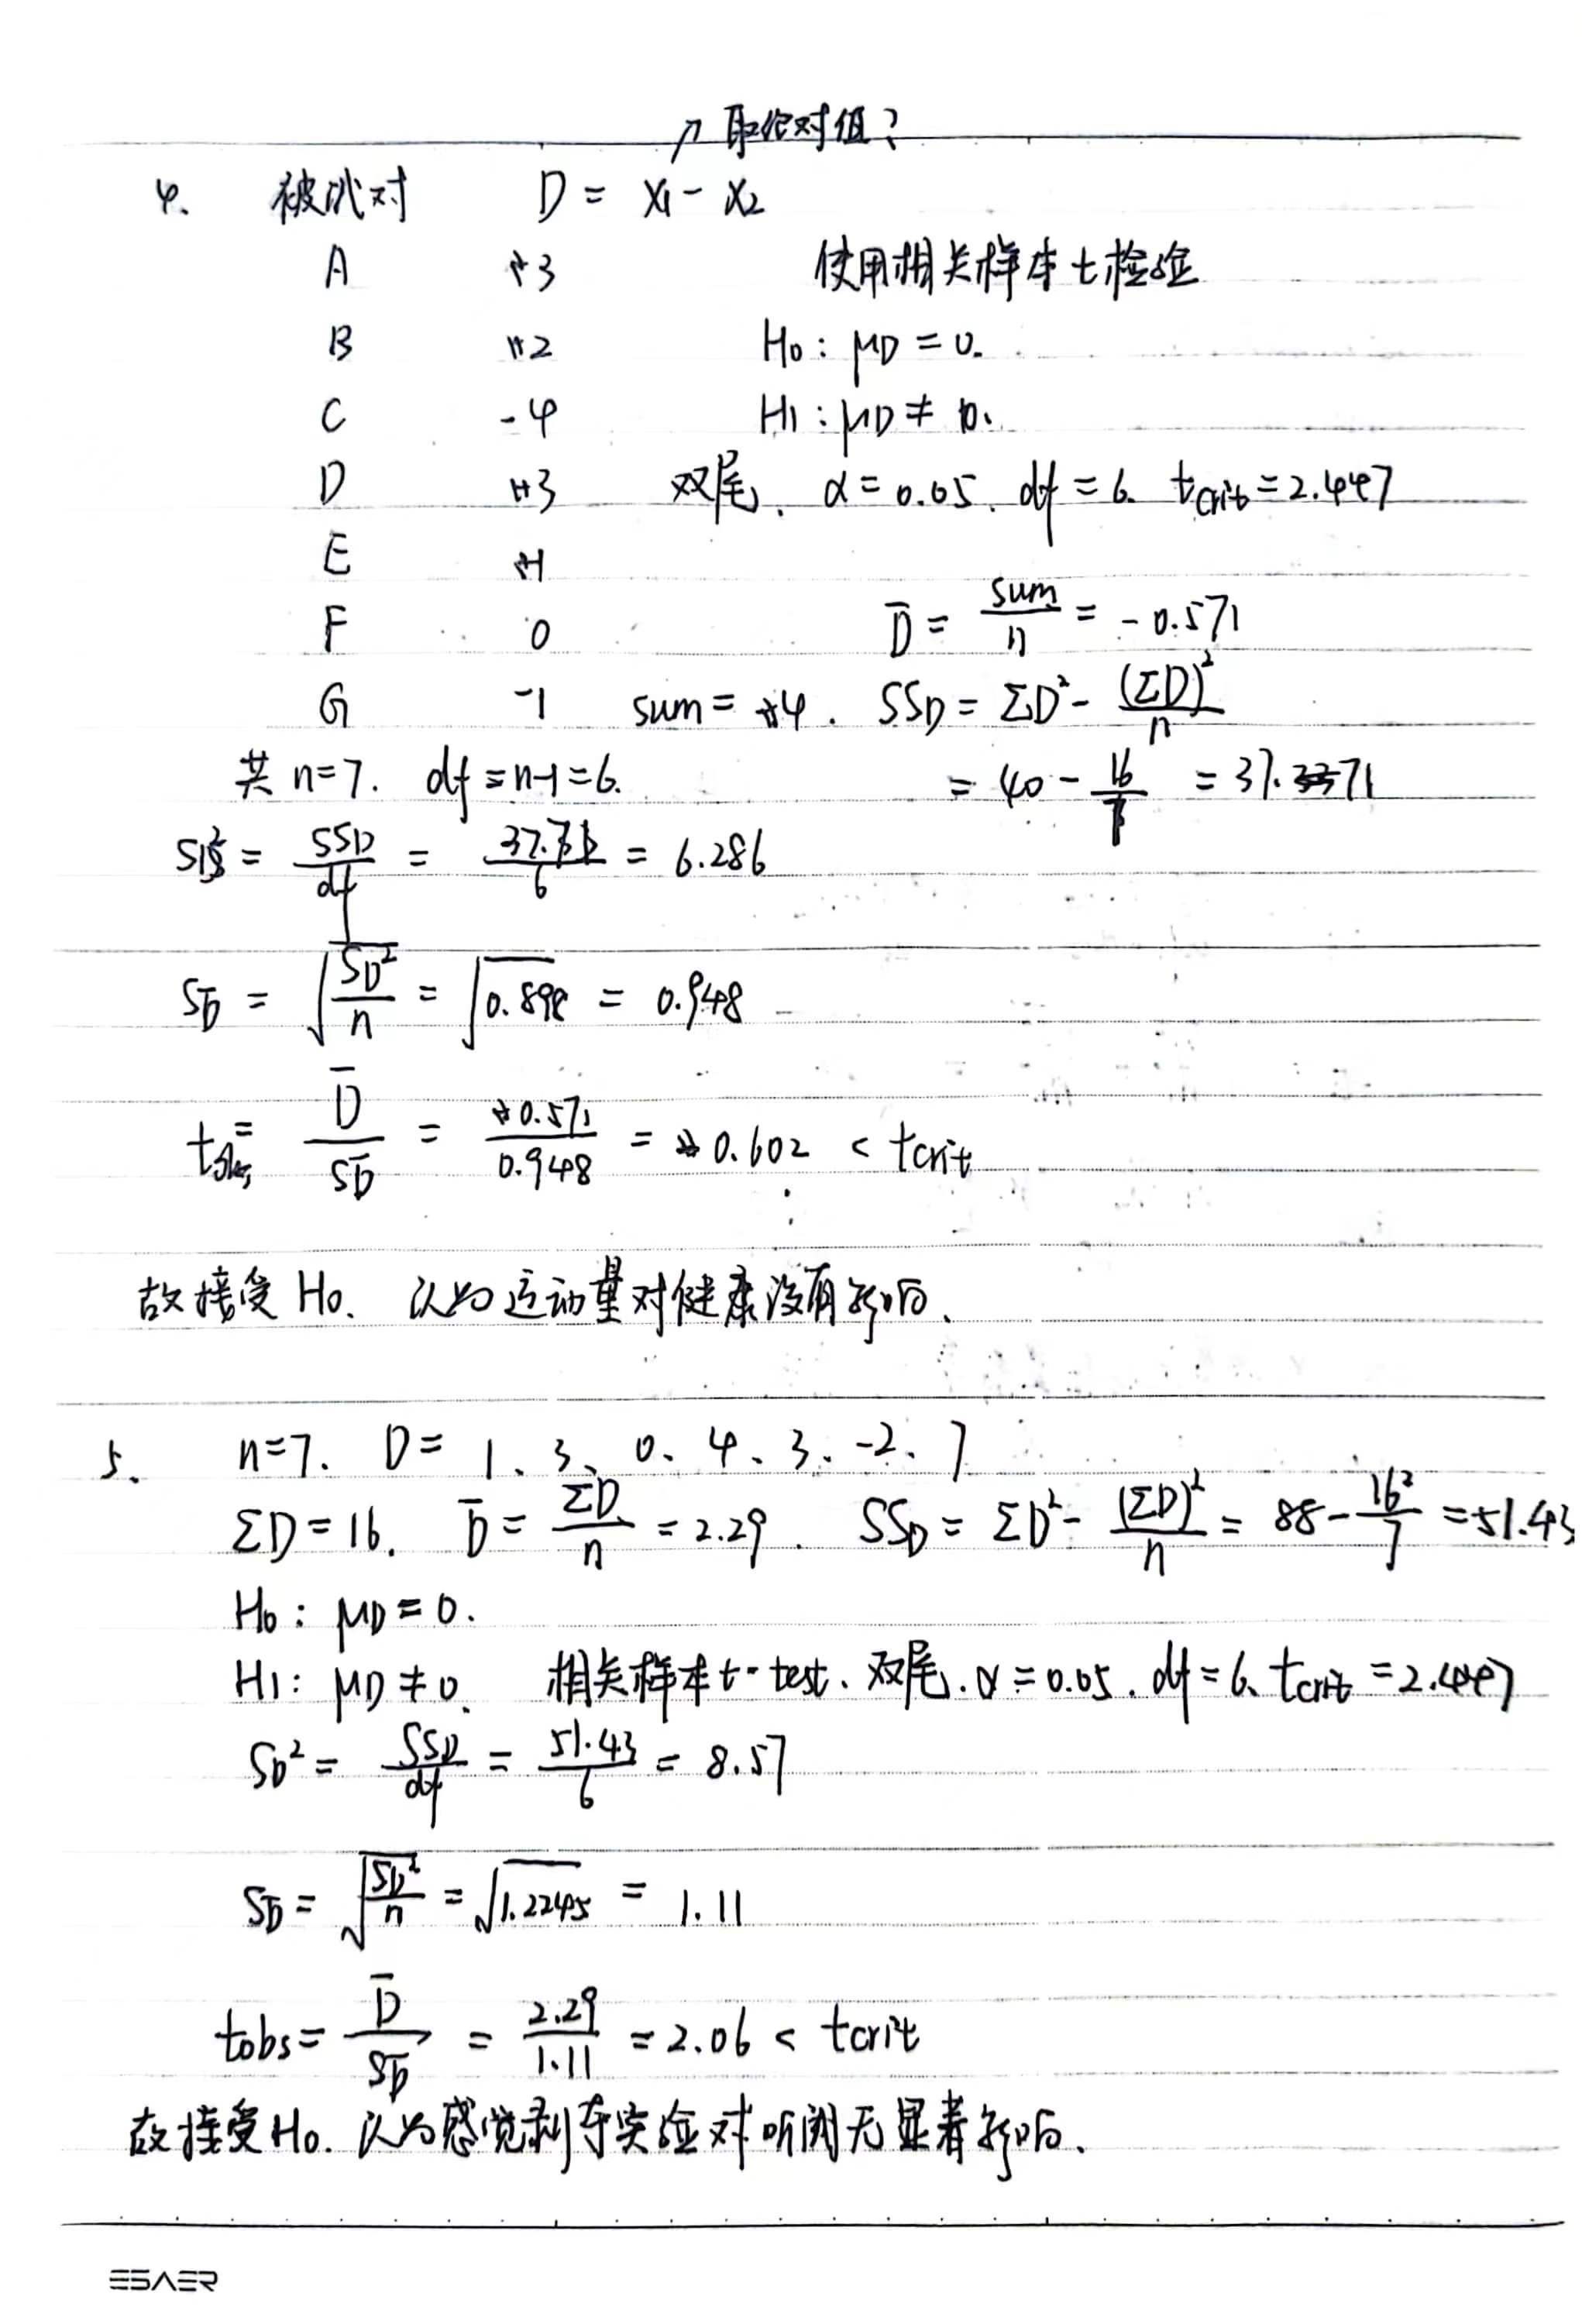 ↗ 取绝对值？
4. 被试对 D = X1 - X2
A +3 使用相关样本t检验
B +2 H0: μD = 0.
C -4 H1: μD ≠ 0.
D +3 双尾. α = 0.05. df = 6. tcrit = 2.447
E +1
F 0 D̄ = sum/n = -0.571
G -1 sum = +4. SSD = ΣD² - (ΣD)²/n
共 n=7. df = n-1 = 6. = 40 - 16/7 = 37.71
SD² = SSD/df = 37.71/6 = 6.286
SD̄ = √(SD²/n) = √0.898 = 0.948
tobs = D̄/SD̄ = +0.571/0.948 = 0.602 < tcrit
故接受 H0. 认为运动量对健康没有影响.
5. n=7. D = 1、3、0、4、3、-2、7
ΣD = 16. D̄ = ΣD/n = 2.29. SSD = ΣD² - (ΣD)²/n = 88 - 16²/7 = 51.43
H0: μD = 0.
H1: μD ≠ 0. 相关样本t-test. 双尾. α = 0.05. df = 6. tcrit = 2.447
SD² = SSD/df = 51.43/6 = 8.57
SD̄ = √(SD²/n) = √1.2245 = 1.11
tobs = D̄/SD̄ = 2.29/1.11 = 2.06 < tcrit
故接受H0. 认为感觉剥夺实验对听阈无显著影响.
ESAER